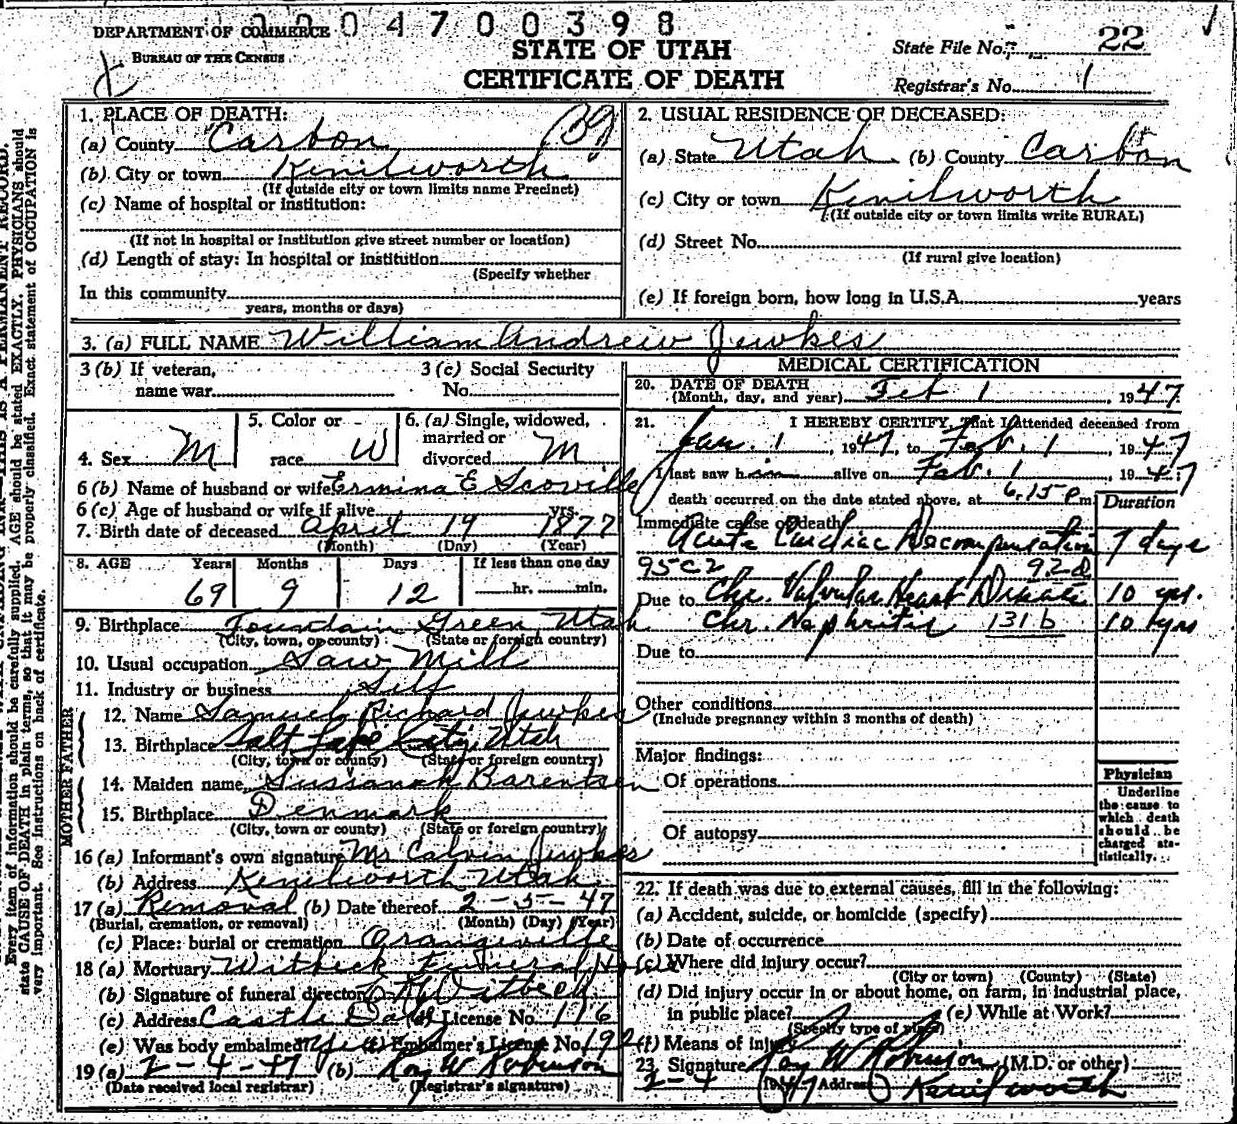 0 0 4 7 0 0 3 9 8
DEPARTMENT OF COMMERCE
BUREAU OF THE CENSUS
STATE OF UTAH
CERTIFICATE OF DEATH
State File No. 22
Registrar's No. 1
1. PLACE OF DEATH:
(a) County Carbon
(b) City or town Kenilworth
(If outside city or town limits name Precinct)
(c) Name of hospital or institution:
(If not in hospital or institution give street number or location)
(d) Length of stay: In hospital or institution
(Specify whether
In this community
years, months or days)
2. USUAL RESIDENCE OF DECEASED:
(a) State Utah (b) County Carbon
(c) City or town Kenilworth
(If outside city or town limits write RURAL)
(d) Street No.
(If rural give location)
(e) If foreign born, how long in U.S.A. years
3. (a) FULL NAME William Andrew Jewkes
3 (b) If veteran, name war
3 (c) Social Security No.
4. Sex M
5. Color or race W
6. (a) Single, widowed, married or divorced M
6 (b) Name of husband or wife Ermina E Scoville
6 (c) Age of husband or wife if alive yrs.
7. Birth date of deceased April 19 1877
(Month) (Day) (Year)
8. AGE Years Months Days If less than one day
69 9 12 hr. min.
9. Birthplace Fountain Green Utah
(City, town, or county) (State or foreign country)
10. Usual occupation Saw Mill
11. Industry or business Self
FATHER
12. Name Samuel Richard Jewkes
13. Birthplace Salt Lake City, Utah
(City, town or county) (State or foreign country)
MOTHER
14. Maiden name Sussanah Barentsen
15. Birthplace Denmark
(City, town or county) (State or foreign country)
16 (a) Informant's own signature Mr Calvin Jewkes
(b) Address Kenilworth Utah
17 (a) Removal (b) Date thereof 2-5-47
(Burial, cremation, or removal) (Month) (Day) (Year)
(c) Place: burial or cremation Orangeville
18 (a) Mortuary Witbeck Funeral Home
(b) Signature of funeral director Witbeck
(c) Address Castle Dale (d) License No. 116
(e) Was body embalmed? Yes (f) Embalmer's License No. 192
19 (a) 2-4-47 (b) Roy W Robinson
(Date received local registrar) (Registrar's signature)
MEDICAL CERTIFICATION
20. DATE OF DEATH
(Month, day, and year) Feb 1, 1947
21. I HEREBY CERTIFY, That I attended deceased from
Jan. 1, 1947, to Feb. 1, 1947
I last saw him alive on Feb. 1, 1947
death occurred on the date stated above, at 6:15 P m.
Duration
Immediate cause of death
Acute Cardiac Decompensation 7 days
95c2 92-d
Due to Chr. Valvular Heart Disease 10 yrs.
Chr. Nephritis 131b 10 yrs
Due to
Other conditions
(Include pregnancy within 3 months of death)
Major findings:
Of operations
Of autopsy
Physician
Underline the cause to which death should be charged statistically.
22. If death was due to external causes, fill in the following:
(a) Accident, suicide, or homicide (specify)
(b) Date of occurrence
(c) Where did injury occur?
(City or town) (County) (State)
(d) Did injury occur in or about home, on farm, in industrial place,
in public place? (e) While at Work?
(Specify type of place)
(f) Means of injury
23. Signature Roy W Robinson (M.D. or other)
2-4 1947 Address Kenilworth
Every item of information should be carefully supplied. AGE should be stated EXACTLY. PHYSICIANS should
state CAUSE OF DEATH in plain terms, so that it may be properly classified. Exact statement of OCCUPATION is
very important. See instructions on back of certificate.
THIS IS A PERMANENT RECORD.